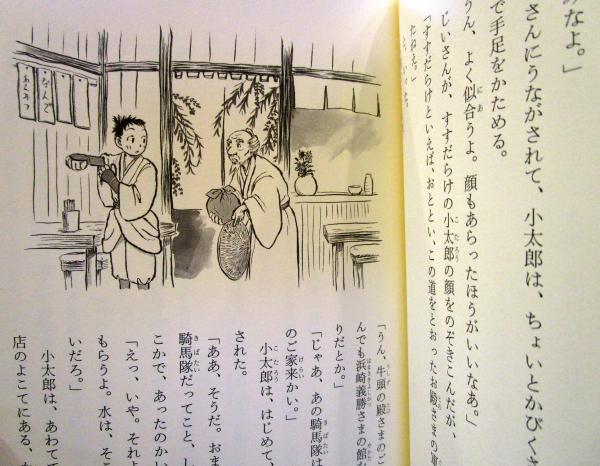 みなよ。」
さんにうながされて、小太郎は、ちょいとかびくさ
で手足をかためる。
うん、よく似合うよ。顔もあらったほうがいいなあ。」
じいさんが、すすだらけの小太郎の顔をのぞきこんだが、
「すすだらけといえば、おととい、この道をとおったお殿さまの軍
たねえ。」
「うん、牛頭の殿さまのご
んでも浜崎義勝さまの館な
りだとか。」
「じゃあ、あの騎馬隊は
のご家来かい。」
小太郎は、はじめて、
された。
「ああ、そうだ。おま
騎馬隊だってこと、し
こかで、あったのかい
「えっ、いや。それよ
もらうよ。水は、そこ
いだろ。」
小太郎は、あわてて
店のよこてにある、